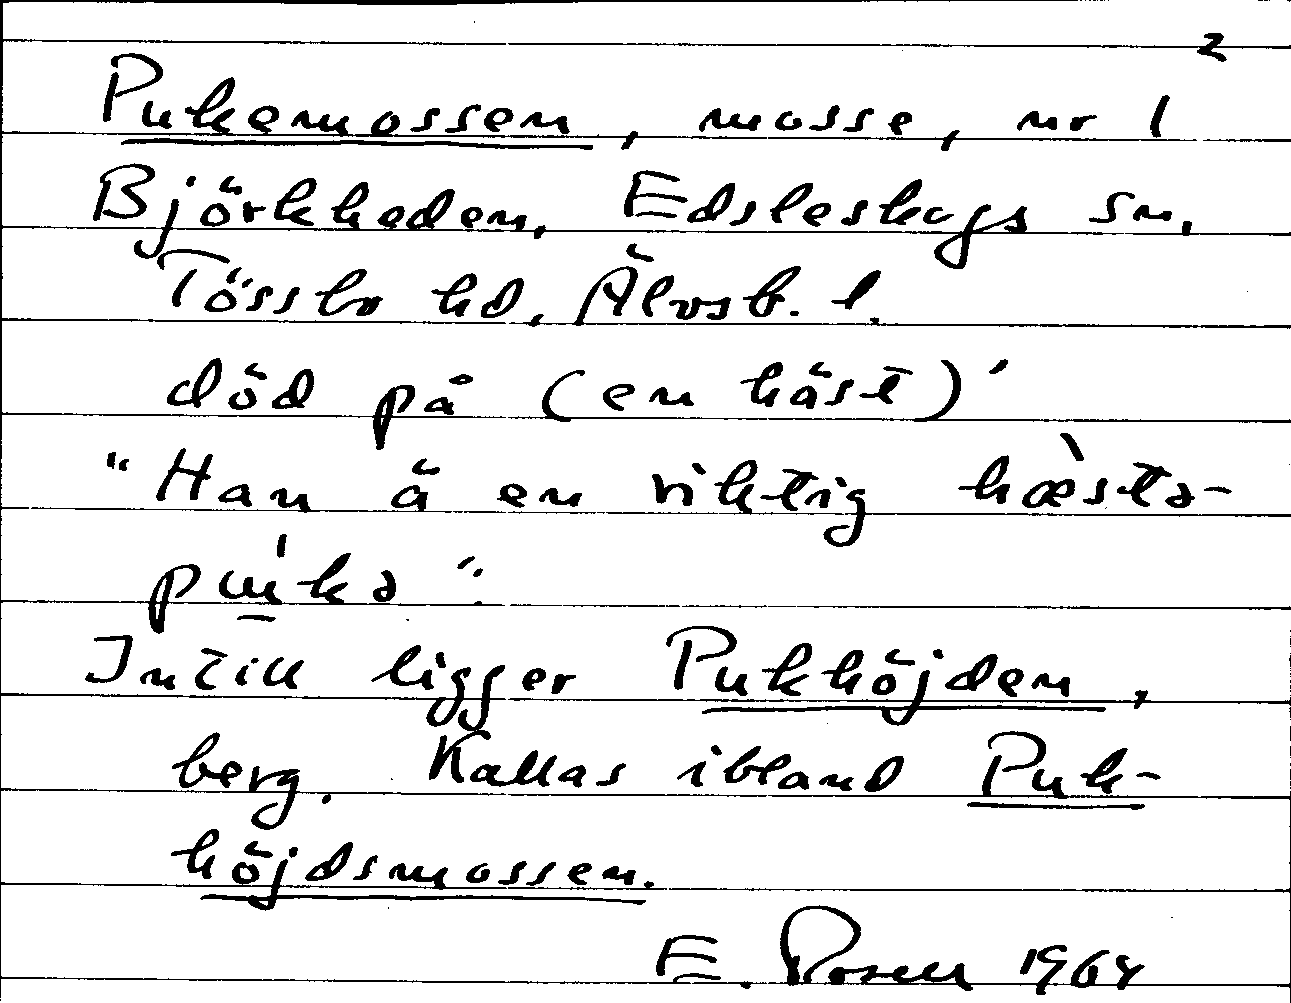 2
Pukemossen, mosse, nr 1
Björkheden, Edsleskogs sn,
Tössbo hd, Älvsb. l.
död på (en häst)'
"Han ä en riktig hæ̀sta-
pu̱'ka".
Intill ligger Pukhöjden,
berg. Kallas ibland Puk-
höjdsmossen.
E. Rosell 1968